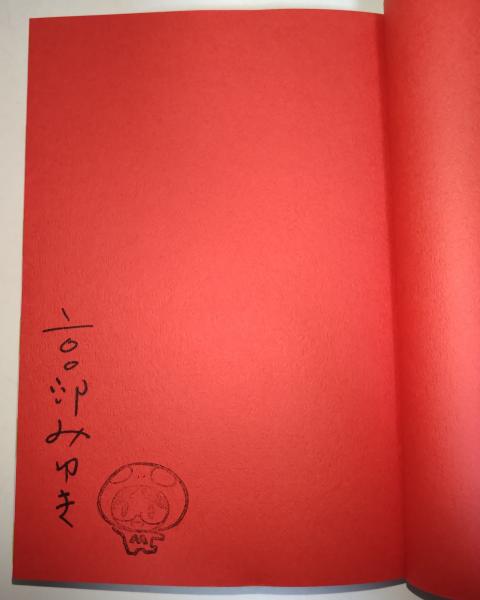 宮部みゆき